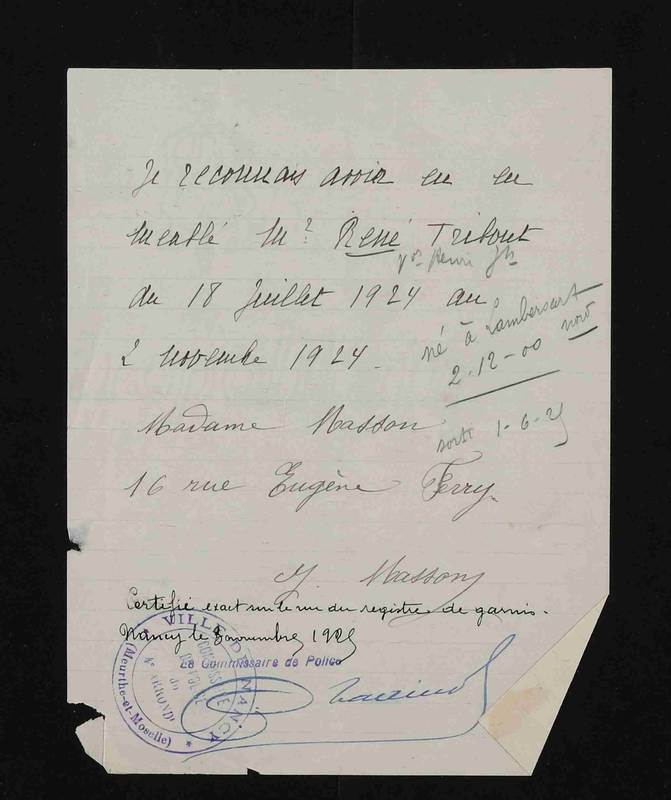 Je reconnais avoir eu en
meublé Mr René Tribout
Henri Jh
du 18 Juillet 1924 au
2 novembre 1924.
né à Lambersart
nord
2-12-00
Madame Masson
sorti 1-6-25
16 rue Eugène Ferry
Masson
Certifié exact sur le vu du registre de garnis.
Nancy le 8 novembre
Le Commissaire de Police
VILLE DE NANCY
COMMISSAIRE
DE POLICE
du
4e ARRONDt
(Meurthe-et-Moselle)